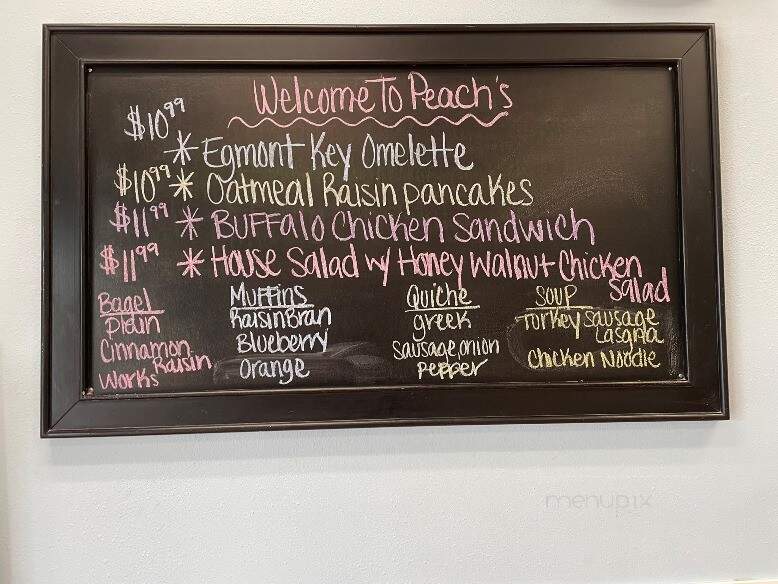 Welcome To Peach's
$10.99 * Egmont Key Omelette
$10.99 * Oatmeal Raisin pancakes
$11.99 * Buffalo Chicken Sandwich
$11.99 * House Salad w/ Honey Walnut Chicken Salad
Bagel
Plain
Cinnamon Raisin
Works
Muffins
Raisin Bran
Blueberry
Orange
Quiche
greek
sausage, onion
pepper
Soup
Turkey Sausage
Lasgna
Chicken Noodle
menupix